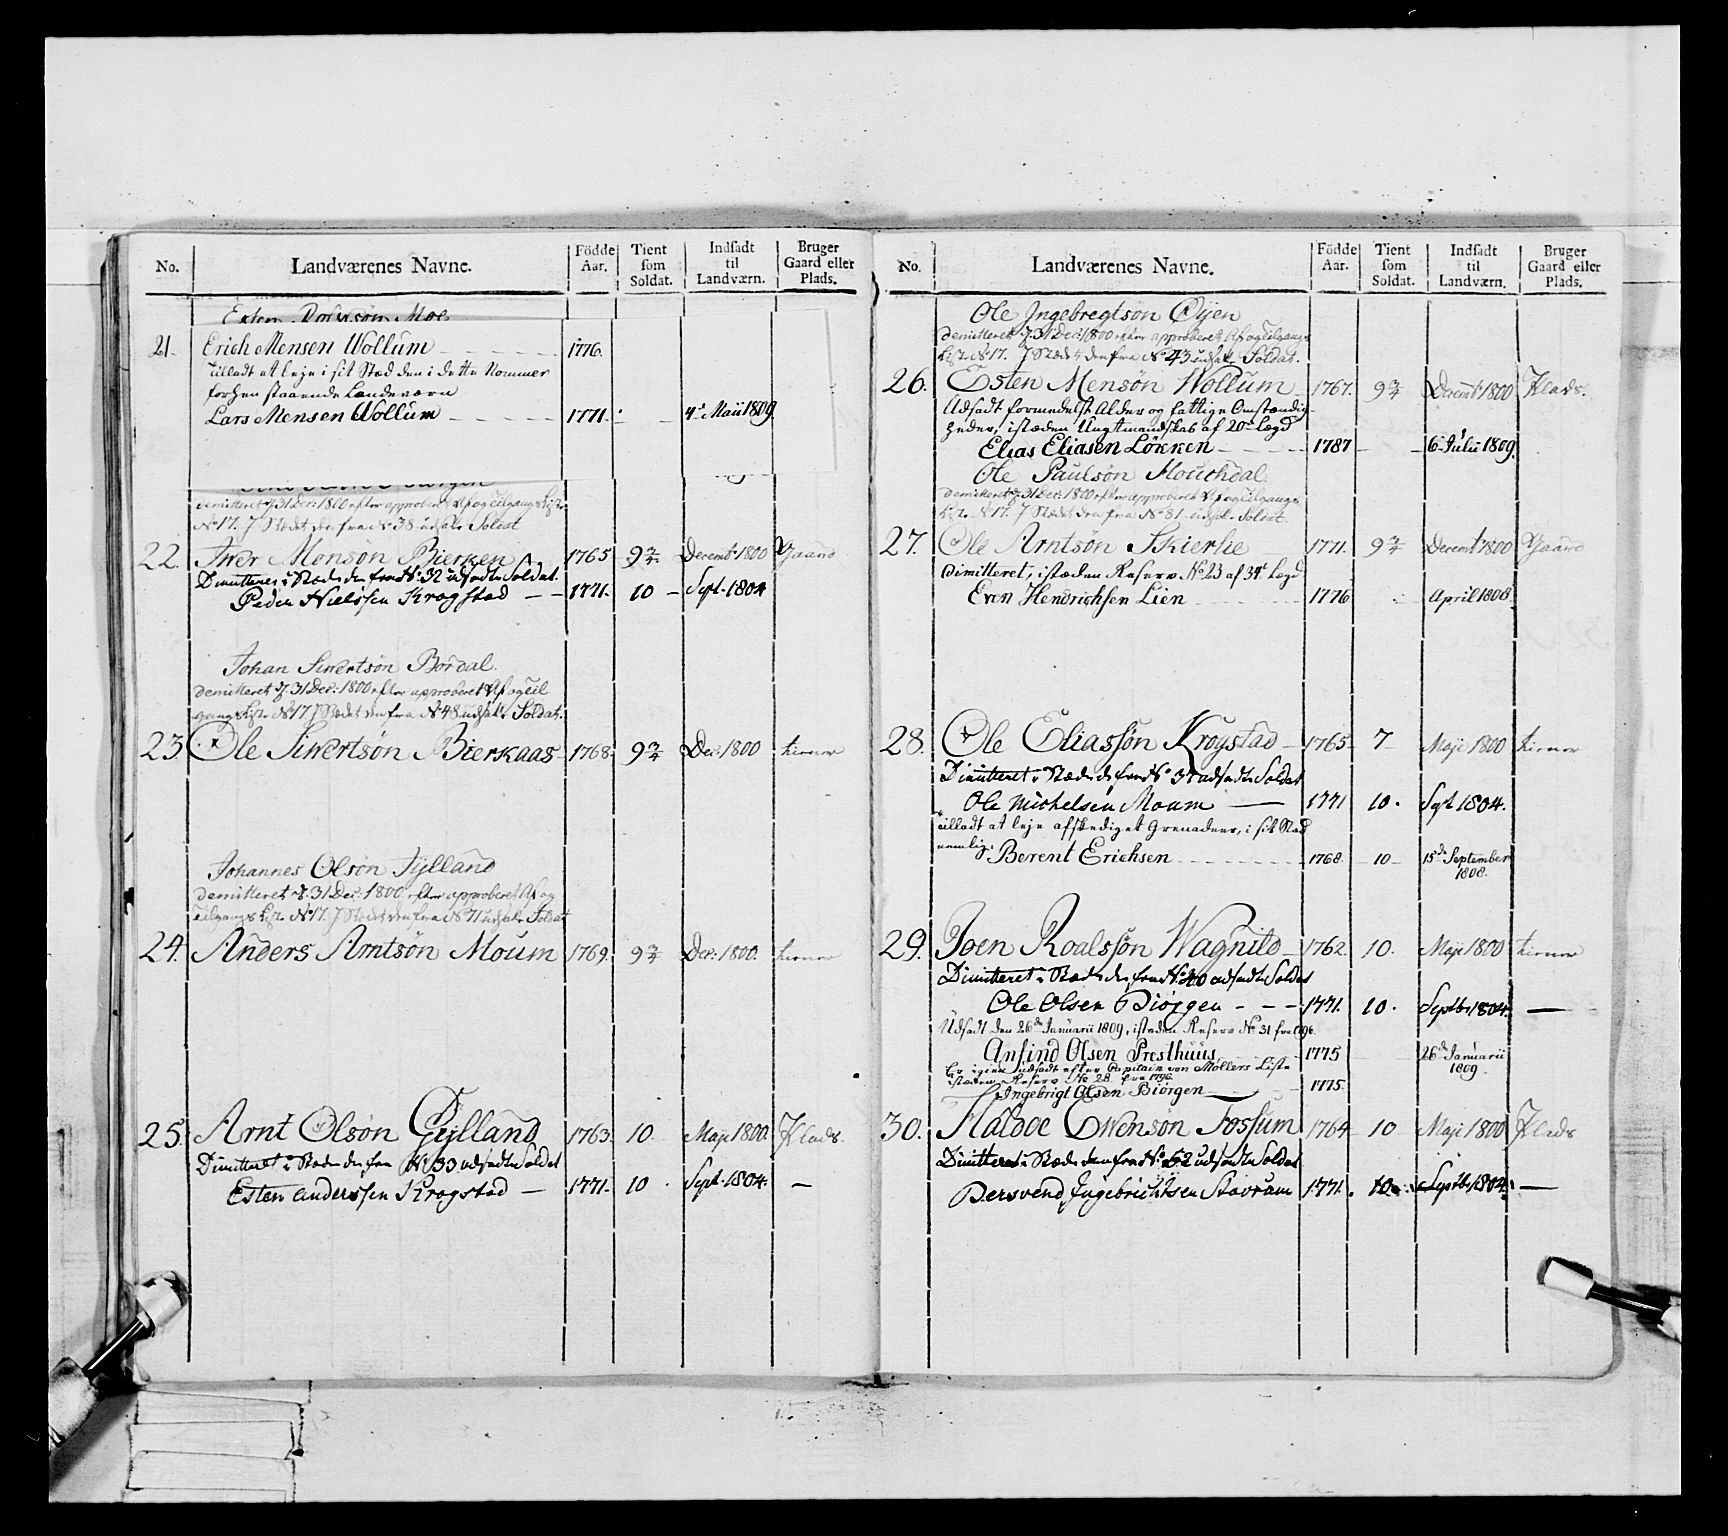 No. Landværenes Navne. Födde Aar. Tient som Soldat. Indsadt til Landværn. Bruger Gaard eller Plads.
Moe
21. Erich Mensen Wollum 1776.
tilladt at leje i sit Sted den i dette Nommer
forhen staaende Landeværn
Lars Mensen Wollum 1771. 4de Maii 1809
demitteret d. 31 Dec: 1800 efter approberet Af og Tilgangs Liste
No 17. I Stædet den fra No 38 udsatte Soldat
22. Iver Monsøn Bierken 1765 9 3/4 Decembr 1800 Gaard
Dimitteret i Stæden den fra No 32 udsadte Soldat.
Peder Nielssen Krogstad 1771. 10 Sept. 1804
Johan Siwertsøn Bordal.
demitteret d. 31 Dec: 1800 efter approberet Af og Til
gangs Liste No 17 I Stædet den fra No 48 udsatte Soldat.
23. Ole Siwertsøn Bierkaas 1768 9 3/4 Dec. 1800
Johannes Olsøn Fylland
demitteret d. 31 Dec. 1800 efter approberet Af og
Tilgangs Liste No 17. I Stædet den fra No 71 udsatte Soldat
24. Anders Arntsøn Moum 1769. 9 3/4 Dec. 1800.
25. Arnt Olsøn Gylland 1763 10 Maji 1800. Plads.
Dimitteret i Stæden den fra No 33 udsadte Soldat
Esten Anderssen Krogstad — 1771. 10. Sept. 1804. —
No. Landværenes Navne. Födde Aar. Tient som Soldat. Indsadt til Landværn. Bruger Gaard eller Plads.
Ole Ingebregtsøn Øyen
demitteret d. 31 Dec: 1800 efter approberet Af og Tilgangs
Liste No 17. I Stædet den fra No 43 udsatte Soldat.
26. Esten Mensøn Wollum 1767. 9 3/4 Decembr 1800 Plads.
Udsadt formedelst Alder og fattige Omstændig-
heder, istæden Ungtmandskab af 20de Lægd
Elias Eliasen Løkken 1787 6te Julii 1809.
Ole Paulsøn Houchdal
demitteret d. 31 Dec: 1800 efter approberet Af og Tilgangs
Liste No 17. I Stædet den fra No 81 udsatte Soldat.
27. Ole Arntsøn Skierlie 1771. 9 3/4 Decembr 1800 Gaard
Dimitteret, istæden Reserv No 23 af 34te Lægd
Even Hendrichsen Lien 1776 April 1808.
28. Ole Eliassøn Krogstad 1765 7 Maji 1800
Dimitteret i Stæden den fra No 37 udsadte Soldat
Ole Michelsen Moum — 1771 10. Sept 1804.
tilladt at leje afskediget Grenadeer, i sit Sted
nemlig Berent Erichsen 1768. 10 15de September 1808.
29. Joen Roalssøn Wagnild 1762. 10. Maji 1800
Dimitteret i Stæden den fra No 40 udsadte Soldat
Ole Olsen Biørgen 1771. 10. Septbr 1804. —
Udsadt den 26de Januarii 1809, istæden Reserv No 31 fra 1796.
Anfind Olsen Presthuus 1775 26de Januarii 1809.
Er igien udsadt efter Capitain von Møllers Liste
istæden Reserv No 28 fra 1796
Ingebrigt Olsen Biørgen 1775.
30. Haldoe Ewensøn Fossum 1764 10 Maji 1800 Plads
Dimitteret i Stæden den fra No 62 udsadte Soldat
Bersvend Ingebrichtsen Stavrum 1771. 10. Septbr 1804. —